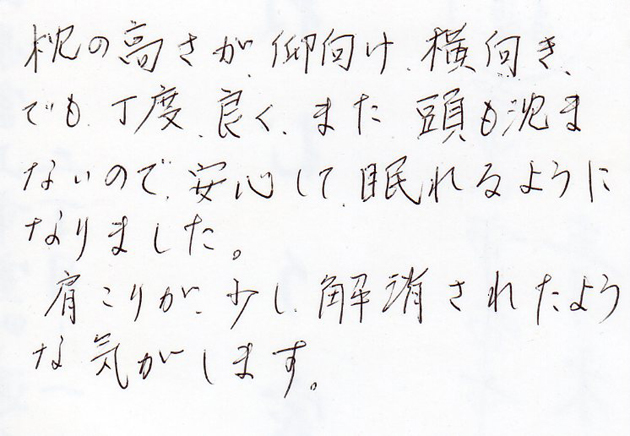 枕の高さが、仰向け、横向き、
でも、丁度、良く、また 頭も沈ま
ないので、安心して、眠れるように
なりました。
肩こりが、少し、解消されたよう
な気がします。